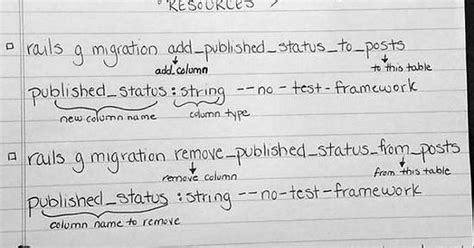 "RESOURCES"
rails g migration add_published_status_to_posts
add column
to this table
published_status : string --no-test-framework
new column name
column type
rails g migration remove_published_status_from_posts
remove column
from this table
published_status : string --no-test-framework
column name to remove